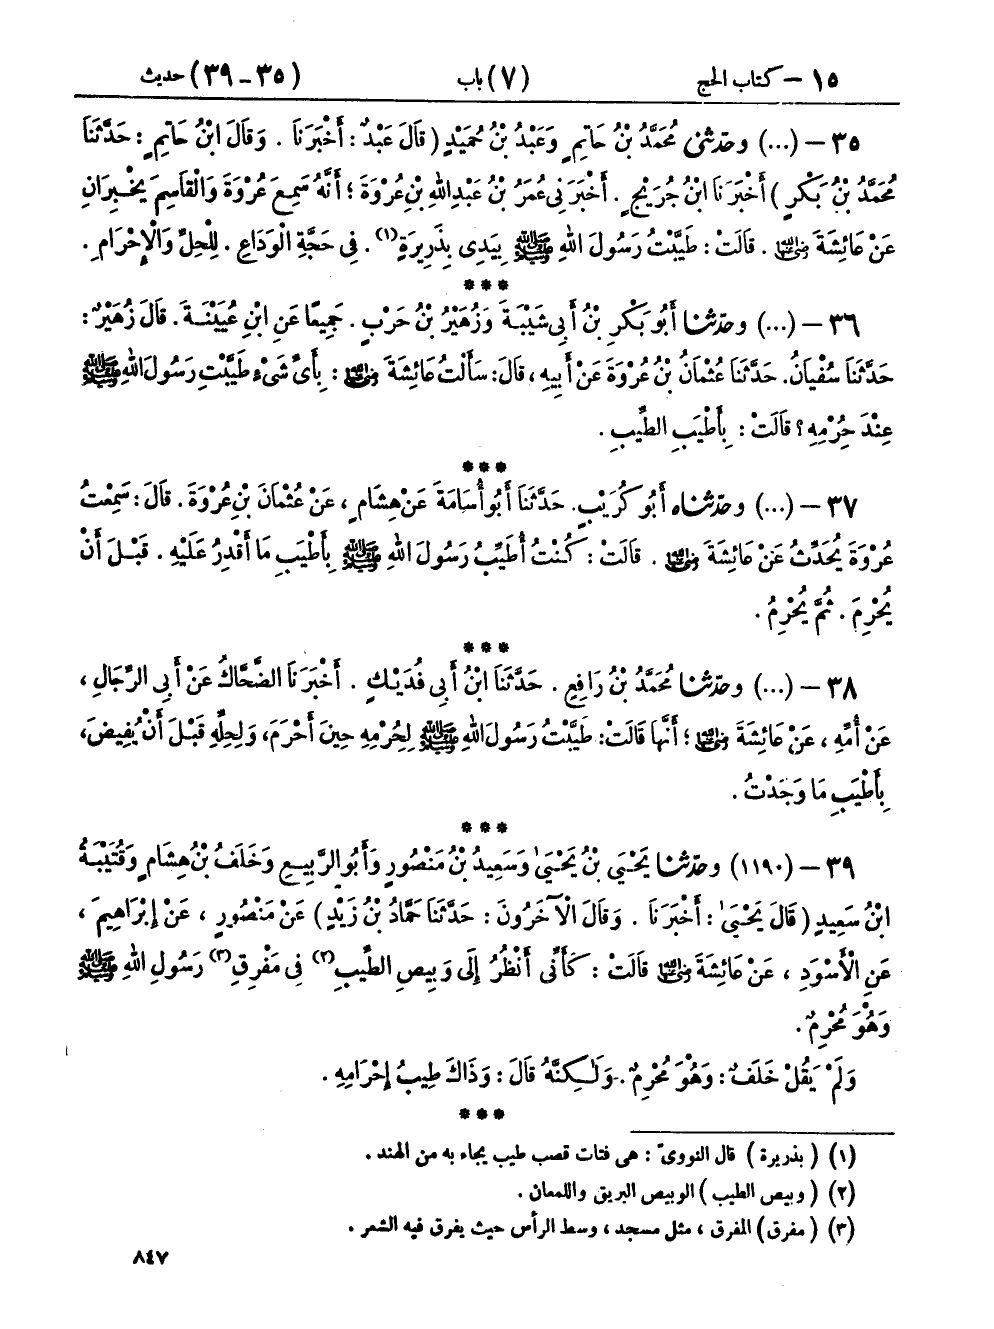 ١٥ – كتاب الحج (٧) باب (٣٥ – ٣٩) حديث
٣٥ – (...) وحدثنى مُحَمَّدُ بْنُ حَاتِمٍ وَعَبْدُ بْنُ حُمَيْدٍ ( قَالَ عَبْدٌ : أَخْبَرَنَا . وَقَالَ ابْنُ حَاتِمٍ : حَدَّثَنَا
مُحَمَّدُ بْنُ بَكْرٍ ) أَخْبَرَنَا ابْنُ جُرَيْجٍ . أَخْبَرَنِى عُمَرُ بْنُ عَبْدِ اللهِ بْنِ عُرْوَةَ ؛ أَنَّهُ سَمِعَ عُرْوَةَ وَالْقَاسِمَ يُخْبِرَانِ
عَنْ عَائِشَةَ رضي الله عنها . قَالَتْ : طَيَّبْتُ رَسُولَ اللهِ ﷺ بِيَدِى بِذَرِيرَةٍ(١) . فِى حَجَّةِ الْوَدَاعِ . لِلْحِلِّ وَالْإِحْرَامِ .
***
٣٦ – (...) وحدثنا أَبُو بَكْرِ بْنُ أَبِى شَيْبَةَ وَزُهَيْرُ بْنُ حَرْبٍ . جَمِيعًا عَنِ ابْنِ عُيَيْنَةَ . قَالَ زُهَيْرٌ :
حَدَّثَنَا سُفْيَانُ . حَدَّثَنَا عُثْمَانُ بْنُ عُرْوَةَ عَنْ أَبِيهِ ، قَالَ : سَأَلْتُ عَائِشَةَ رضي الله عنها : بِأَىِّ شَىْءٍ طَيَّبْتِ رَسُولَ اللهِ ﷺ
عِنْدَ حِرْمِهِ ؟ قَالَتْ : بِأَطْيَبِ الطِّيبِ .
***
٣٧ – (...) وحدثناه أَبُو كُرَيْبٍ . حَدَّثَنَا أَبُو أُسَامَةَ عَنْ هِشَامٍ ، عَنْ عُثْمَانَ بْنِ عُرْوَةَ . قَالَ : سَمِعْتُ
عُرْوَةَ يُحَدِّثُ عَنْ عَائِشَةَ رضي الله عنها . قَالَتْ : كُنْتُ أُطَيِّبُ رَسُولَ اللهِ ﷺ بِأَطْيَبِ مَا أَقْدِرُ عَلَيْهِ . قَبْلَ أَنْ
يُحْرِمَ . ثُمَّ يُحْرِمُ .
***
٣٨ – (...) وحدثنا مُحَمَّدُ بْنُ رَافِعٍ . حَدَّثَنَا ابْنُ أَبِى فُدَيْكٍ . أَخْبَرَنَا الضَّحَّاكُ عَنْ أَبِى الرِّجَالِ ،
عَنْ أُمِّهِ ، عَنْ عَائِشَةَ رضي الله عنها ؛ أَنَّهَا قَالَتْ : طَيَّبْتُ رَسُولَ اللهِ ﷺ لِحُرْمِهِ حِينَ أَحْرَمَ ، وَلِحِلِّهِ قَبْلَ أَنْ يُفِيضَ ،
بِأَطْيَبِ مَا وَجَدْتُ .
***
٣٩ – (١١٩٠) وحدثنا يَحْيَىٰ بْنُ يَحْيَىٰ وَسَعِيدُ بْنُ مَنْصُورٍ وَأَبُو الرَّبِيعِ وَخَلَفُ بْنُ هِشَامٍ وَقُتَيْبَةُ
ابْنُ سَعِيدٍ ( قَالَ يَحْيَىٰ : أَخْبَرَنَا . وَقَالَ الْآخَرُونَ : حَدَّثَنَا حَمَّادُ بْنُ زَيْدٍ ) عَنْ مَنْصُورٍ ، عَنْ إِبْرَاهِيمَ ،
عَنِ الْأَسْوَدِ ، عَنْ عَائِشَةَ رضي الله عنها قَالَتْ : كَأَنِّى أَنْظُرُ إِلَى وَبِيصِ الطِّيبِ(٢) فِى مَفْرِقِ(٣) رَسُولِ اللهِ ﷺ
وَهُوَ مُحْرِمٌ .
وَلَمْ يَقُلْ خَلَفٌ : وَهُوَ مُحْرِمٌ . وَلٰكِنَّهُ قَالَ : وَذَاكَ طِيبُ إِحْرَامِهِ .
***
(١) ( بذريرة ) قال النووىّ : هى فتات قصب طيب يجاء به من الهند .
(٢) ( وبيص الطيب ) الوبيص البريق واللمعان .
(٣) ( مفرق ) المفرق ، مثل مسجد ، وسط الرأس حيث يفرق فيه الشعر .
٨٤٧